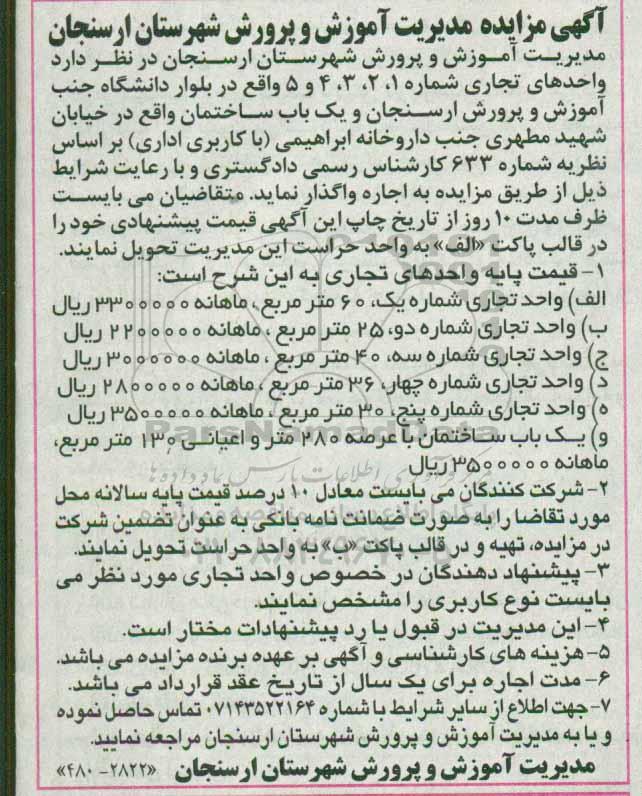 آگهی مزایده مدیریت آموزش و پرورش شهرستان ارسنجان
مدیریت آموزش و پرورش شهرستان ارسنجان در نظر دارد
واحدهای تجاری شماره ۱، ۲، ۳، ۴ و ۵ واقع در بلوار دانشگاه جنب
آموزش و پرورش ارسنجان و یک باب ساختمان واقع در خیابان
شهید مطهری جنب داروخانه ابراهیمی (با کاربری اداری) بر اساس
نظریه شماره ۶۳۳ کارشناس رسمی دادگستری و با رعایت شرایط
ذیل از طریق مزایده به اجاره واگذار نماید. متقاضیان می بایست
ظرف مدت ۱۰ روز از تاریخ چاپ این آگهی قیمت پیشنهادی خود را
در قالب پاکت «الف» به واحد حراست این مدیریت تحویل نمایند.
۱- قیمت پایه واحدهای تجاری به این شرح است:
الف) واحد تجاری شماره یک، ۶۰ متر مربع، ماهانه ۳۳۰۰۰۰۰ ریال
ب) واحد تجاری شماره دو، ۲۵ متر مربع، ماهانه ۲۲۰۰۰۰۰ ریال
ج) واحد تجاری شماره سه، ۴۰ متر مربع، ماهانه ۳۰۰۰۰۰۰ ریال
د) واحد تجاری شماره چهار، ۳۶ متر مربع، ماهانه ۲۸۰۰۰۰۰ ریال
ه) واحد تجاری شماره پنج، ۳۰ متر مربع، ماهانه ۳۵۰۰۰۰۰ ریال
و) یک باب ساختمان با عرصه ۲۸۰ متر و اعیانی ۱۳۰ متر مربع،
ماهانه ۳۵۰۰۰۰۰ ریال
۲- شرکت کنندگان می بایست معادل ۱۰ درصد قیمت پایه سالانه محل
مورد تقاضا را به صورت ضمانت نامه بانکی به عنوان تضمین شرکت
در مزایده، تهیه و در قالب پاکت «ب» به واحد حراست تحویل نمایند.
۳- پیشنهاد دهندگان در خصوص واحد تجاری مورد نظر می
بایست نوع کاربری را مشخص نمایند.
۴- این مدیریت در قبول یا رد پیشنهادات مختار است.
۵- هزینه های کارشناسی و آگهی بر عهده برنده مزایده می باشد.
۶- مدت اجاره برای یک سال از تاریخ عقد قرارداد می باشد.
۷- جهت اطلاع از سایر شرایط با شماره ۰۷۱۴۳۵۲۲۱۶۴ تماس حاصل نموده
و یا به مدیریت آموزش و پرورش شهرستان ارسنجان مراجعه نمایید.
مدیریت آموزش و پرورش شهرستان ارسنجان «۲۸۲۲- ۴۸۰»
ParsNamadData